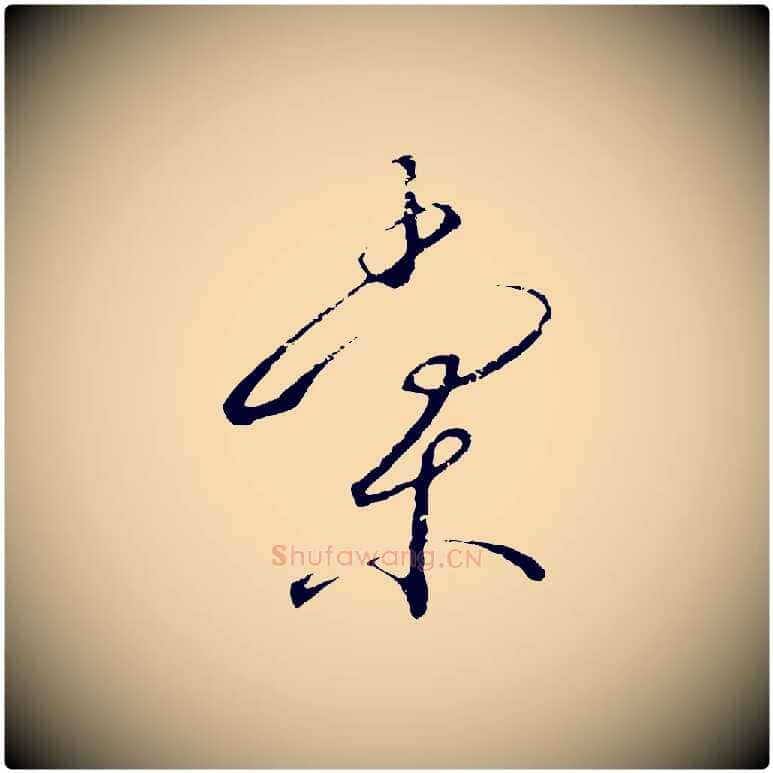 索
Shufawang.CN